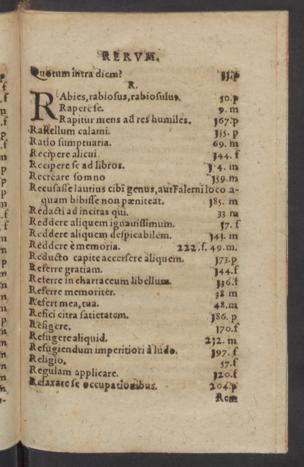 RERVM.
Quotum intra diem? 33.p
R.
RAbies, rabiosus, rabiosulus. 50.p
Rapere se. 9.m
Rapitur mens ad res humiles. 367.p
Rastellum calami. 315.p
Ratio sumptuaria. 69.m
Recipere alicui. 344.f
Recipere se ad libros.
Recreare somno 159.m
Recusasse lautius cibi genus, aut Falerni loco a-
quam bibisse non pæniteat. 185.m
Redacti ad incitas qui. 33 m
Reddere aliquem ignauissimum. 17.f
Reddere aliquem despicabilem. 141.m
Reddere è memoria. 222.f. 49.m.
Reducto capite accersere aliquem. 173.p
Referre gratiam. 344.f
Referre in chartaceum libellum. 336.f
Referre memoriter. 38 m
Refert mea, tua. 48.m
Refici citra satietatem. 386.p
Refigere. 170.f
Refugere aliquid. 212.m
Refugiendum imperitiori à ludo. 197.f
Religio. 57.f
Regulam applicare. 120.f
Relaxare se occupationibus. 204.p
Rem